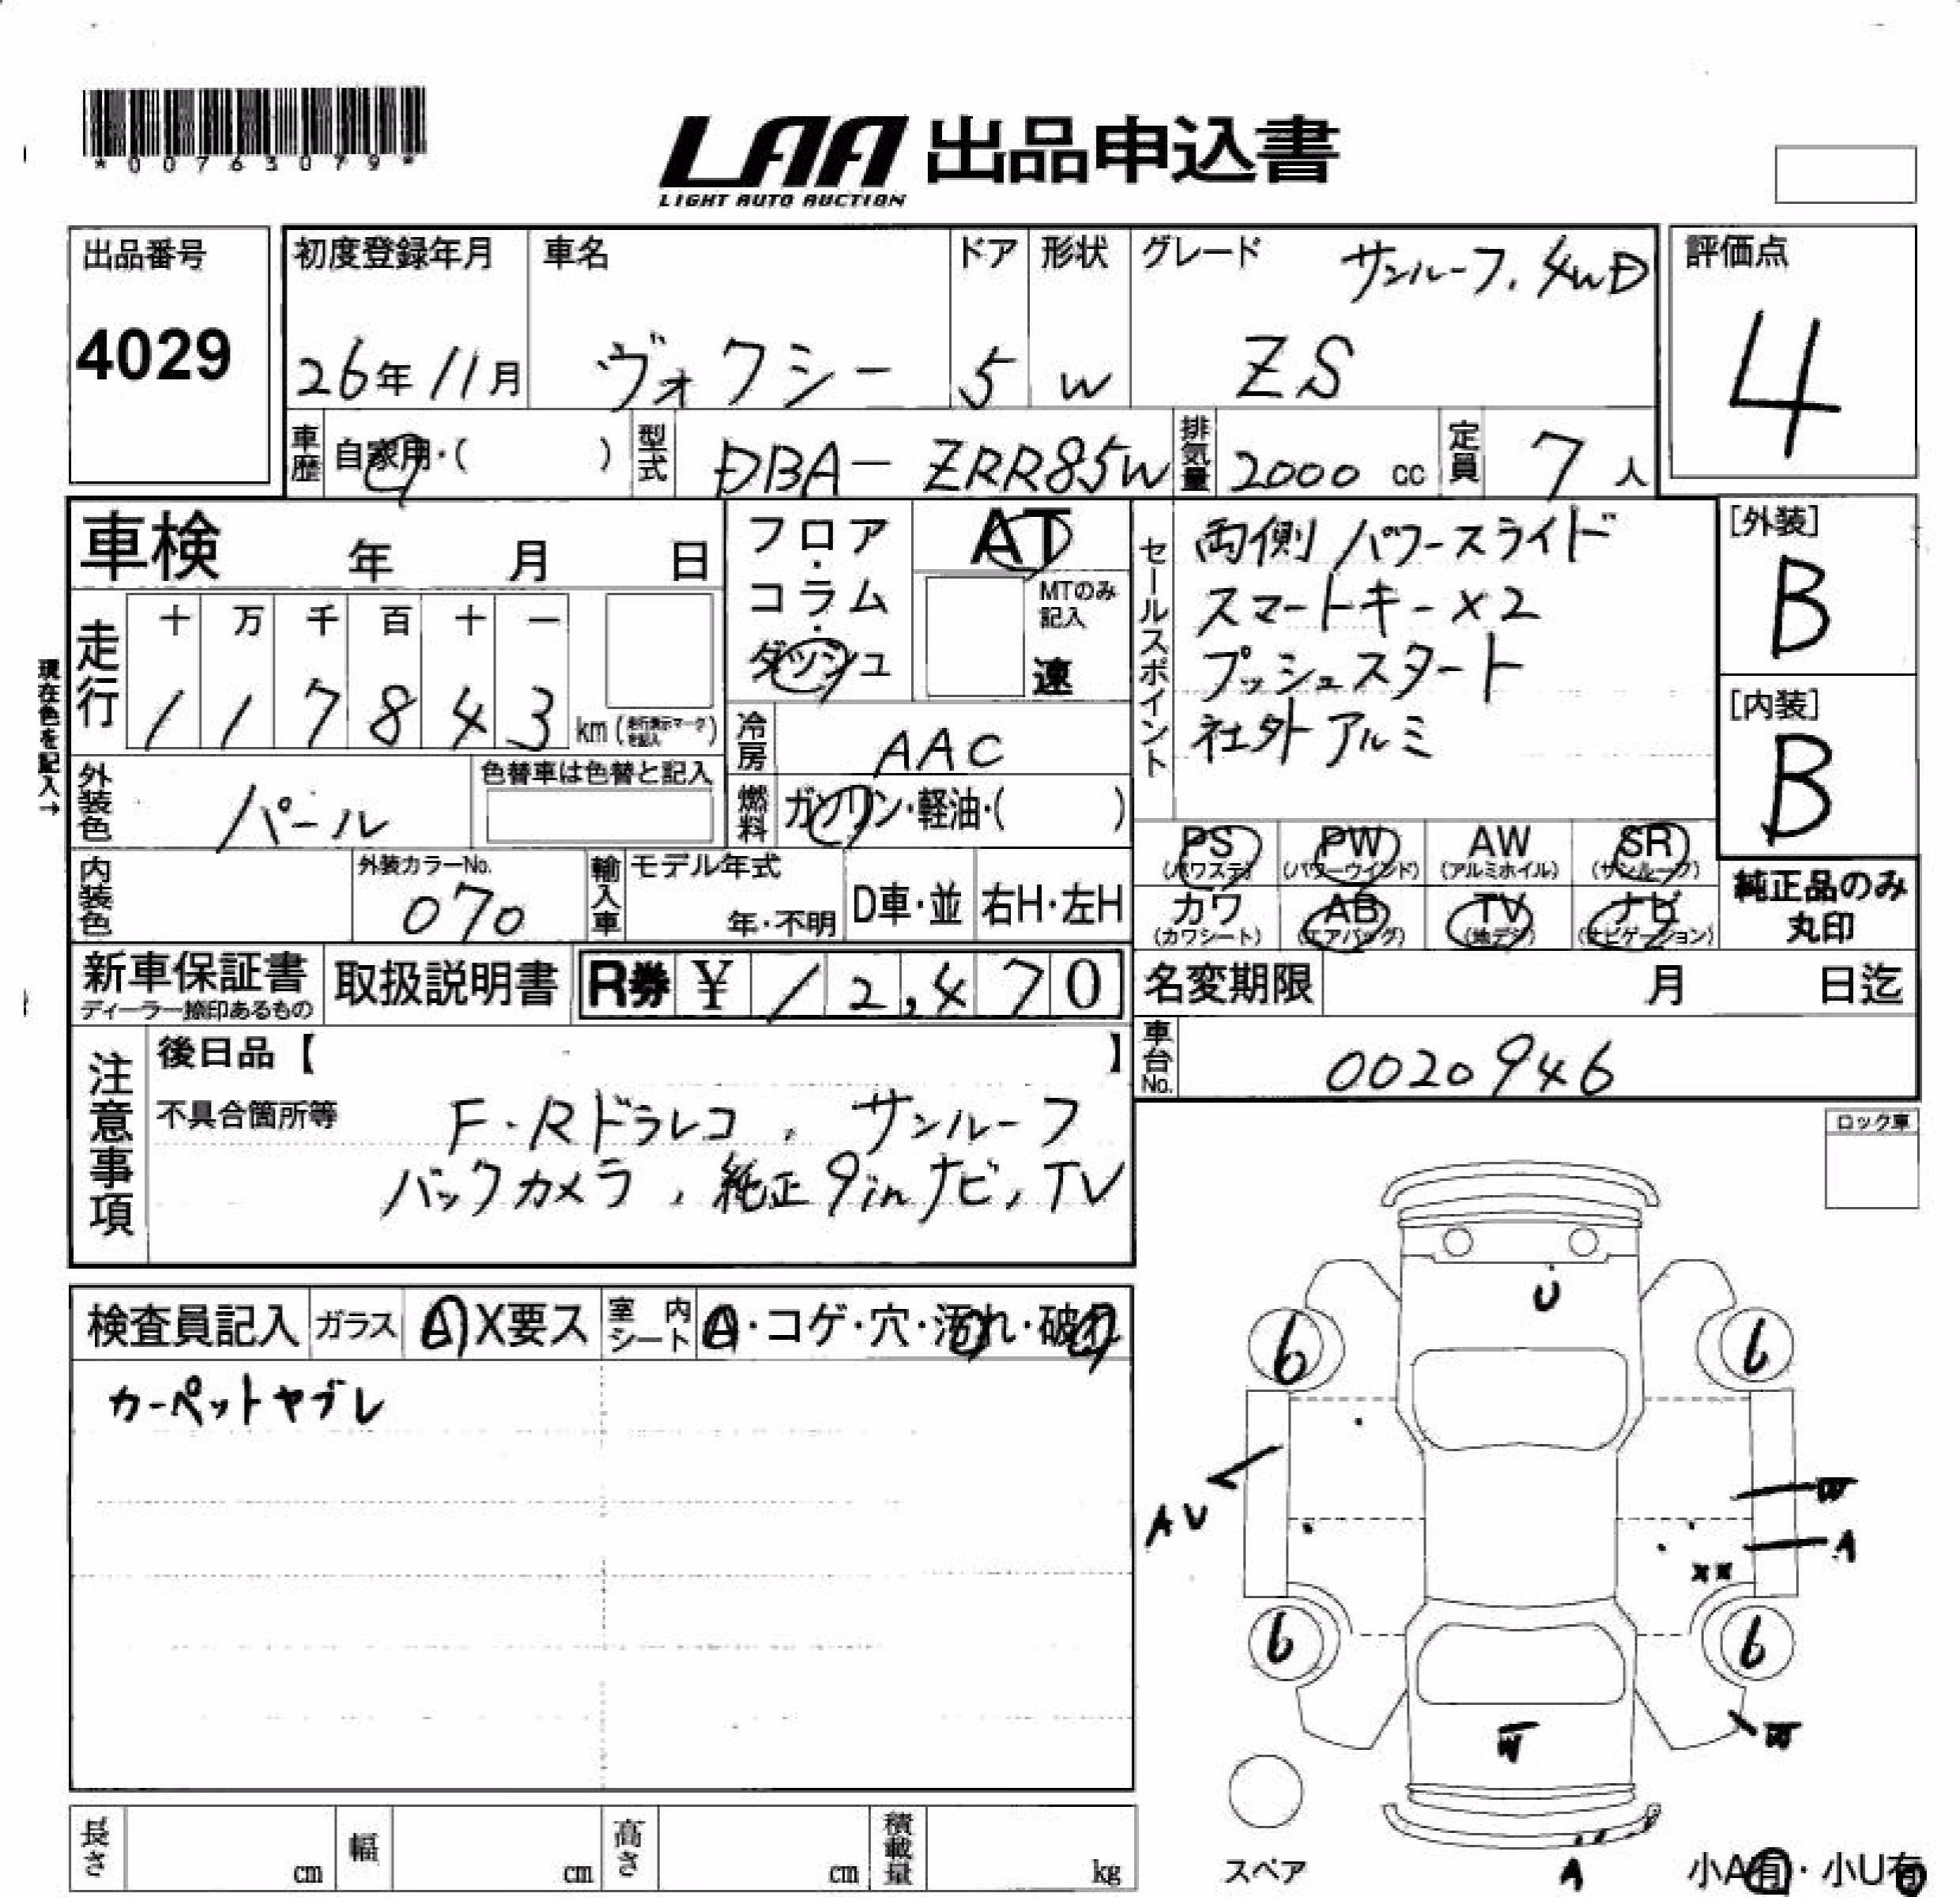 *00763079*
LAA 出品申込書
LIGHT AUTO AUCTION
出品番号
4029
初度登録年月
26年11月
車名
ヴォクシー
ドア
5
形状
W
グレード
サンルーフ、4WD
ZS
評価点
4
車歴
自家用・( )
型式
DBA-ZRR85W
排気量
2000 cc
定員
7人
車検 年 月 日
フロア・コラム・ダッシュ
AT
MTのみ記入
速
セールスポイント
両側パワースライド
スマートキー×2
プッシュスタート
社外アルミ
[外装]
B
[内装]
B
現在色を記入→
走行
十 万 千 百 十 一
1 1 7 8 4 3 km
冷房
AAC
外装色
パール
色替車は色替と記入
燃料
ガソリン・軽油・( )
PS AW PW SR
(パワステ) (パワーウインド) (アルミホイル) (サンルーフ)
カワ AB TV ナビ
(カワシート) (エアバッグ) (地デジ) (ナビゲーション)
純正品のみ
丸印
内装色
外装カラーNo.
070
輸入車
モデル年式
年・不明
D車・並
右H・左H
新車保証書
ディーラー捺印あるもの
取扱説明書
R券 ¥ 12,470
名変期限 月 日迄
車台No.
0020946
注意事項
後日品【 】
不具合箇所等
F・Rドラレコ、サンルーフ
バックカメラ、純正9inナビ、TV
ロック車
検査員記入
ガラス
A X要ス
室内シート
A・コゲ・穴・汚れ・破れ
カーペットヤブレ
U
6 6
AU
W
A
XX
6 6
W
W
A
スペア
小A有・小U有
長さ cm
幅 cm
高さ cm
積載量 kg